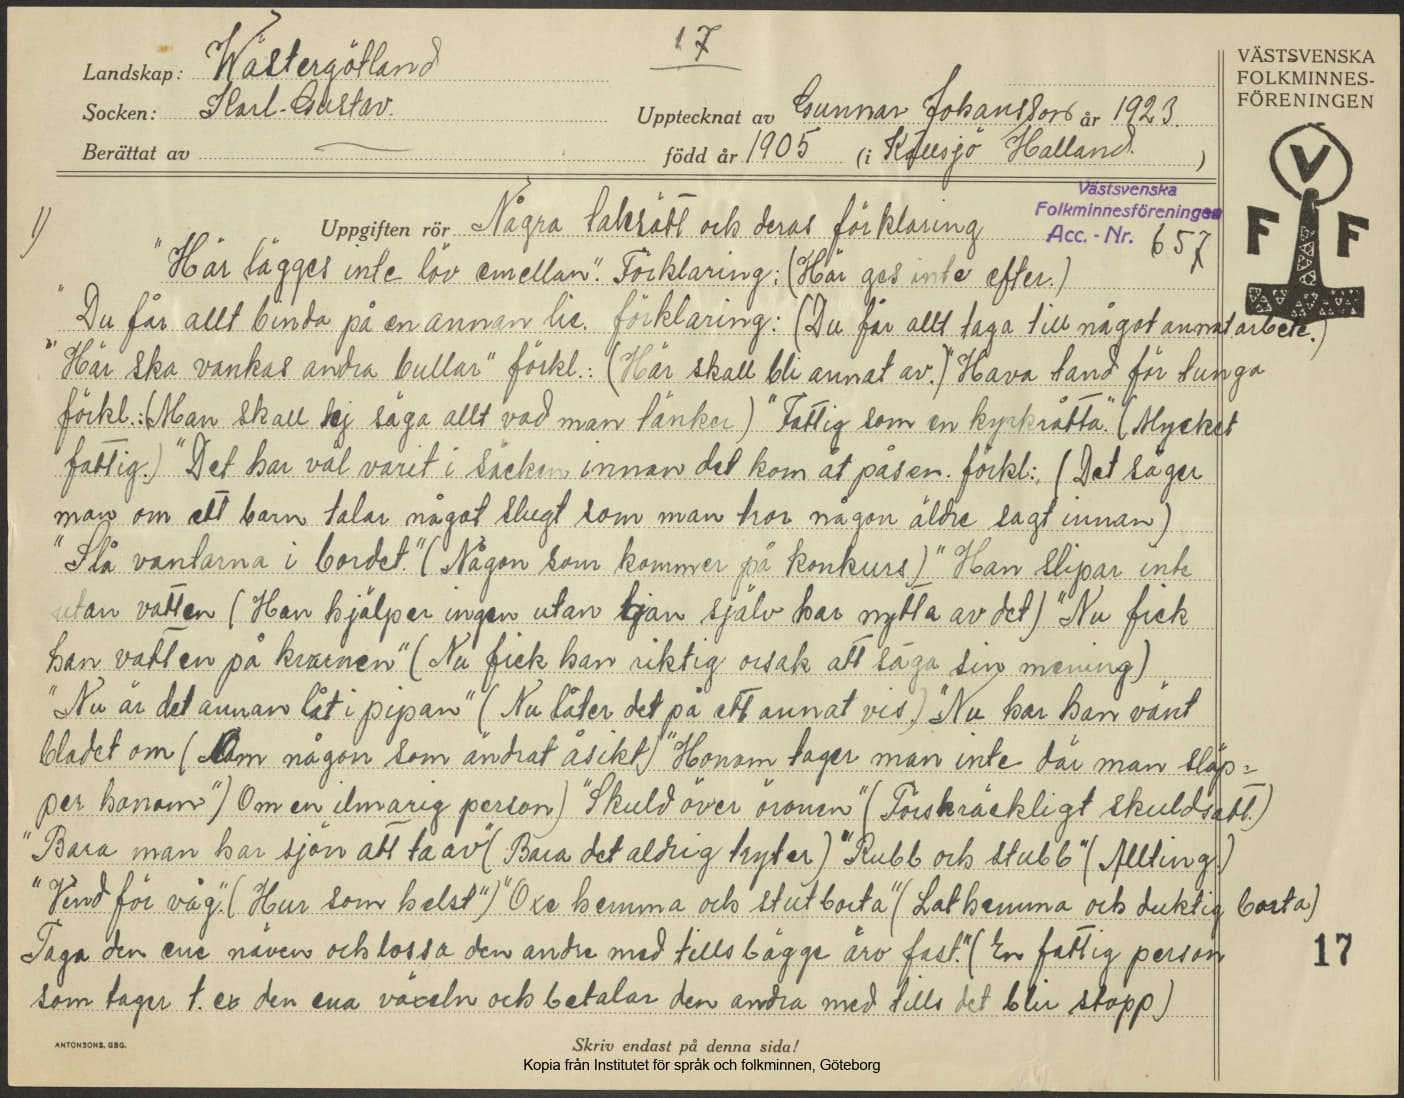 17
VÄSTSVENSKA
FOLKMINNES-
FÖRENINGEN
Landskap: Wästergötland
Socken: Karl-Gustav. Upptecknat av Gunnar Johansson år 1923.
Berättat av född år 1905 (i Källsjö Halland.)
V
F F
Västsvenska
Folkminnesföreningen
Acc.-Nr. 657
1) Uppgiften rör Några talesätt och deras förklaring
"Här lägges inte löv emellan". Förklaring: (Här ges inte efter.)
"Du får allt binda på en annan lie. förklaring: (Du får allt taga till något annat arbete.)
"Här ska vankas andra bullar" förkl.: (Här skall bli annat av.) "Hava tand för tunga
förkl.: (Man skall ej säga allt vad man tänker) "Fattig som en kyrkråtta". (Mycket
fattig.) "Det har väl varit i säcken innan det kom åt påsen. förkl:, (Det säger
man om ett barn talar något slugt som man tror någon äldre sagt innan)
"Slå vantarna i bordet." (Någon som kommer på konkurs) "Han slipar inte
utan vatten (Han hjälper ingen utan han själv har nytta av det) "Nu fick
han vatten på kvarnen" (Nu fick han riktig orsak att säga sin mening)
"Nu är det annan låt i pipan" (Nu låter det på ett annat vis.) "Nu har han vänt
bladet om (Om någon som ändrat åsikt) "Honom tager man inte där man släp=
per honom") Om en ilmarig person) "Skuld över öronen" (Förskräckligt skuldsatt.)
"Bara man har sjön att ta av" (Bara det aldrig tryter) "Rubb och stubb" (Allting.)
"Vind för våg." (Hur som helst") "Oxe hemma och stut borta" (Lat hemma och duktig borta)
Taga den ene näven och lossa den andre med tills bägge äro fast." (En fattig person
som tager t. ex den ena växeln och betalar den andra med tills det blir stopp)
17
ANTONSONS, GBG.
Skriv endast på denna sida!
Kopia från Institutet för språk och folkminnen, Göteborg